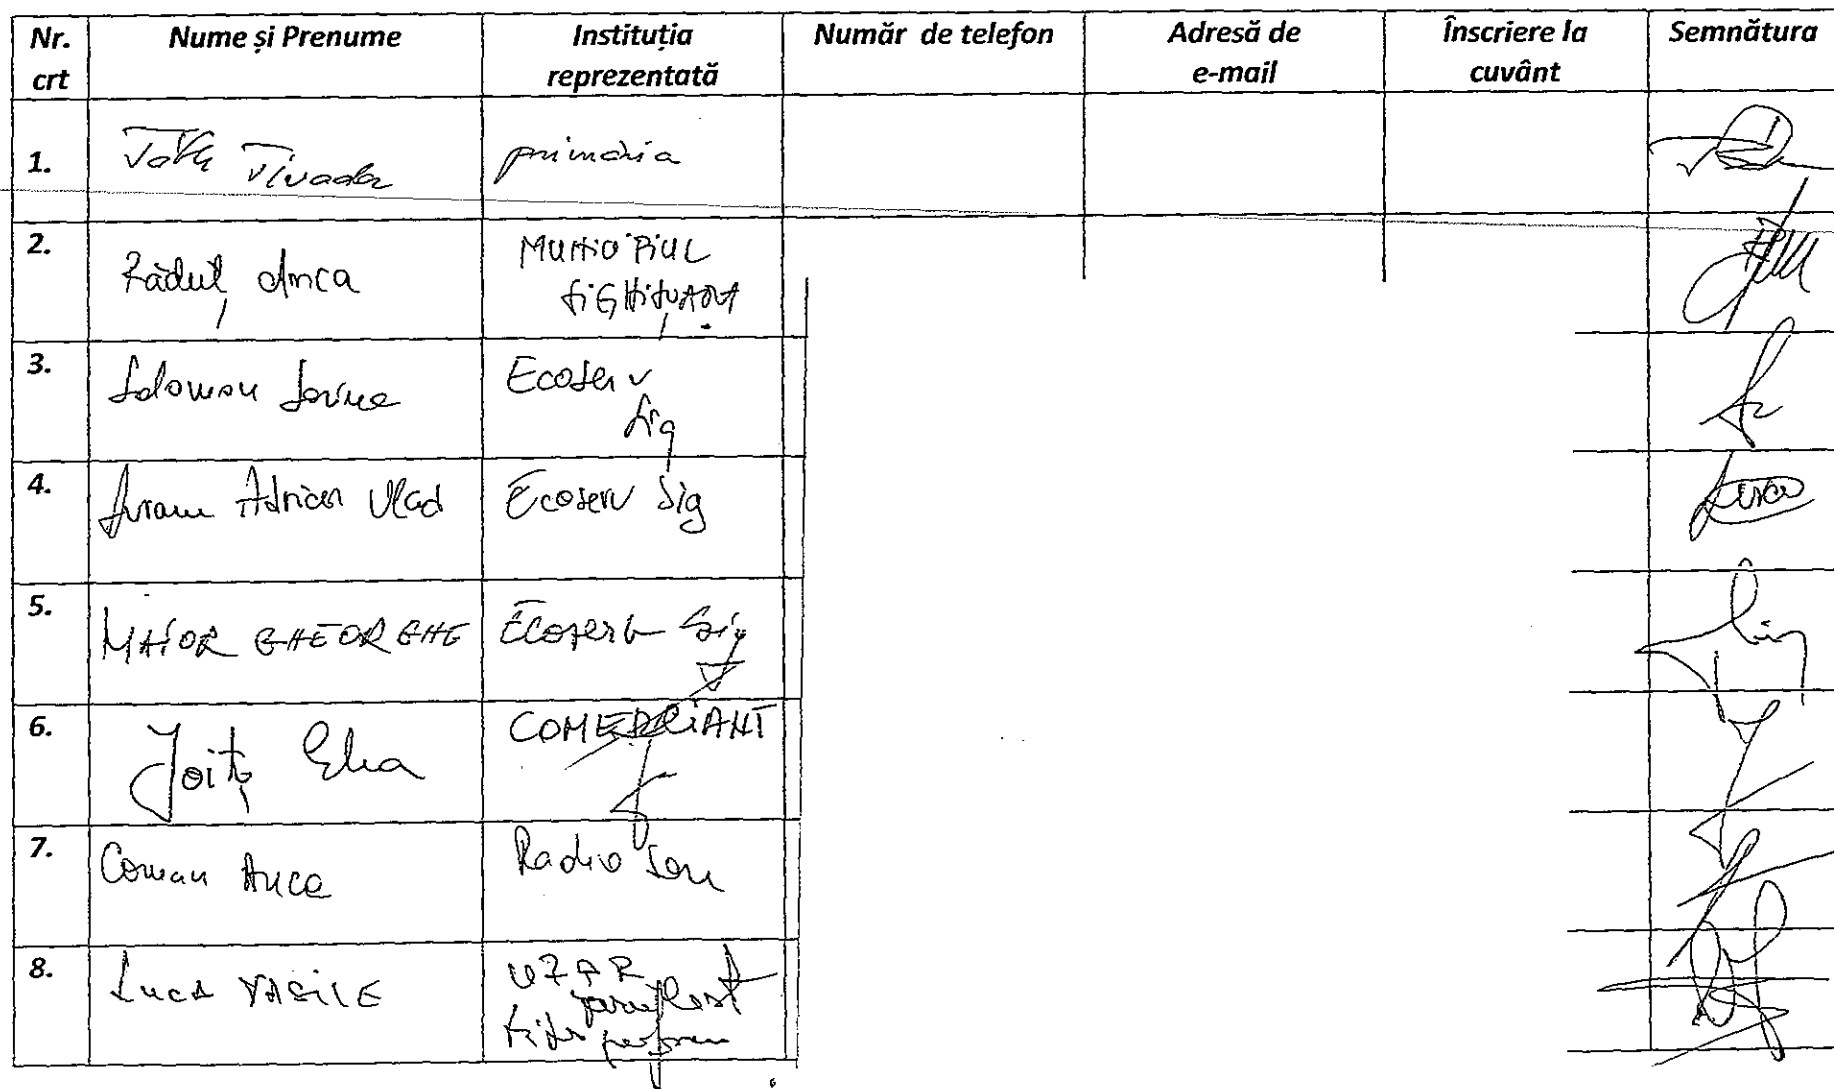 Nr. crt | Nume și Prenume | Instituția reprezentată | Număr de telefon | Adresă de e-mail | Înscriere la cuvânt | Semnătura
1. | Toth Tivadar | primăria
2. | Răduț Anca | MUNICIPIUL SIGHIȘOARA
3. | Solomon Sorina | Ecoserv Sig
4. | Avram Adrian Vlad | Ecoserv Sig
5. | MAIOR GHEORGHE | Ecoserv Sig
6. | Joiță | COMERCIANT
7. | Coman Anca | Radio Son
8. | Luca VASILE